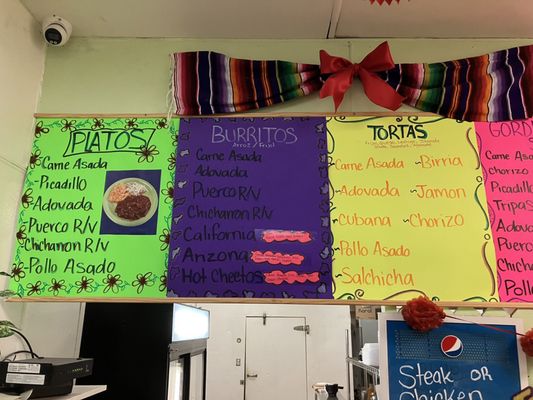 PLATOS
Carne Asada
-Picadillo
-Adovada
-Puerco R/V
-Chicharron R/V
-Pollo Asado
BURRITOS
Arroz / Frijol
-Carne Asada
-Adovada
-Puerco R/V
-Chicharron R/V
-California
-Arizona
-Hot Cheetos
TORTAS
-Carne Asada
-Adovada
-Cubana
-Pollo Asado
-Salchicha
-Birria
-Jamon
-Chorizo
GORD
Carne Asad
Chorizo
Picadillo
Tripas
Adovad
Puerco
Chicha
Pollo
Steak or
Chicken